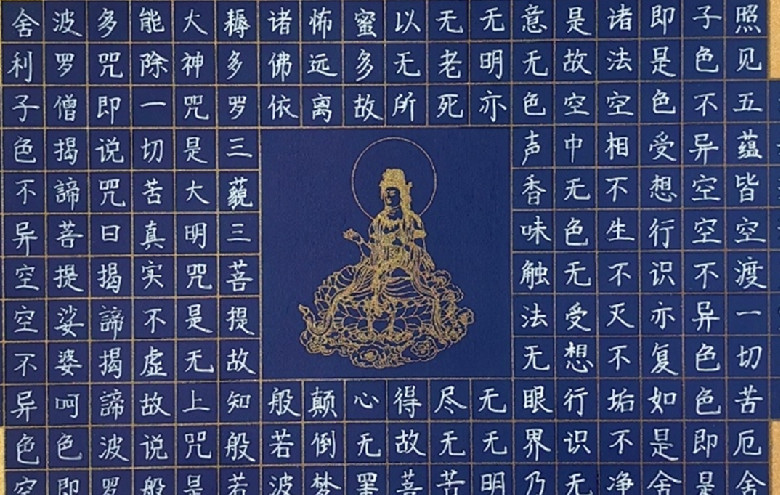 照见五蕴皆空渡一切苦厄舍
子色不异空空不异色色即是
即是色受想行识亦复如是舍
诸法空相不生不灭不垢不净
是故空中无色无受想行识无
意无色声香味触法无眼界乃
无明亦无无明
无老死尽无苦
以无所得故菩
蜜多故心无罣
怖远离颠倒梦
诸佛依般若波
耨多罗三藐三菩提故知般若
大神咒是大明咒是无上咒是
能除一切苦真实不虚故说般
多咒即说咒曰揭諦揭諦波罗
波罗僧揭諦菩提娑婆呵色即
舍利子色不异空空不异色空